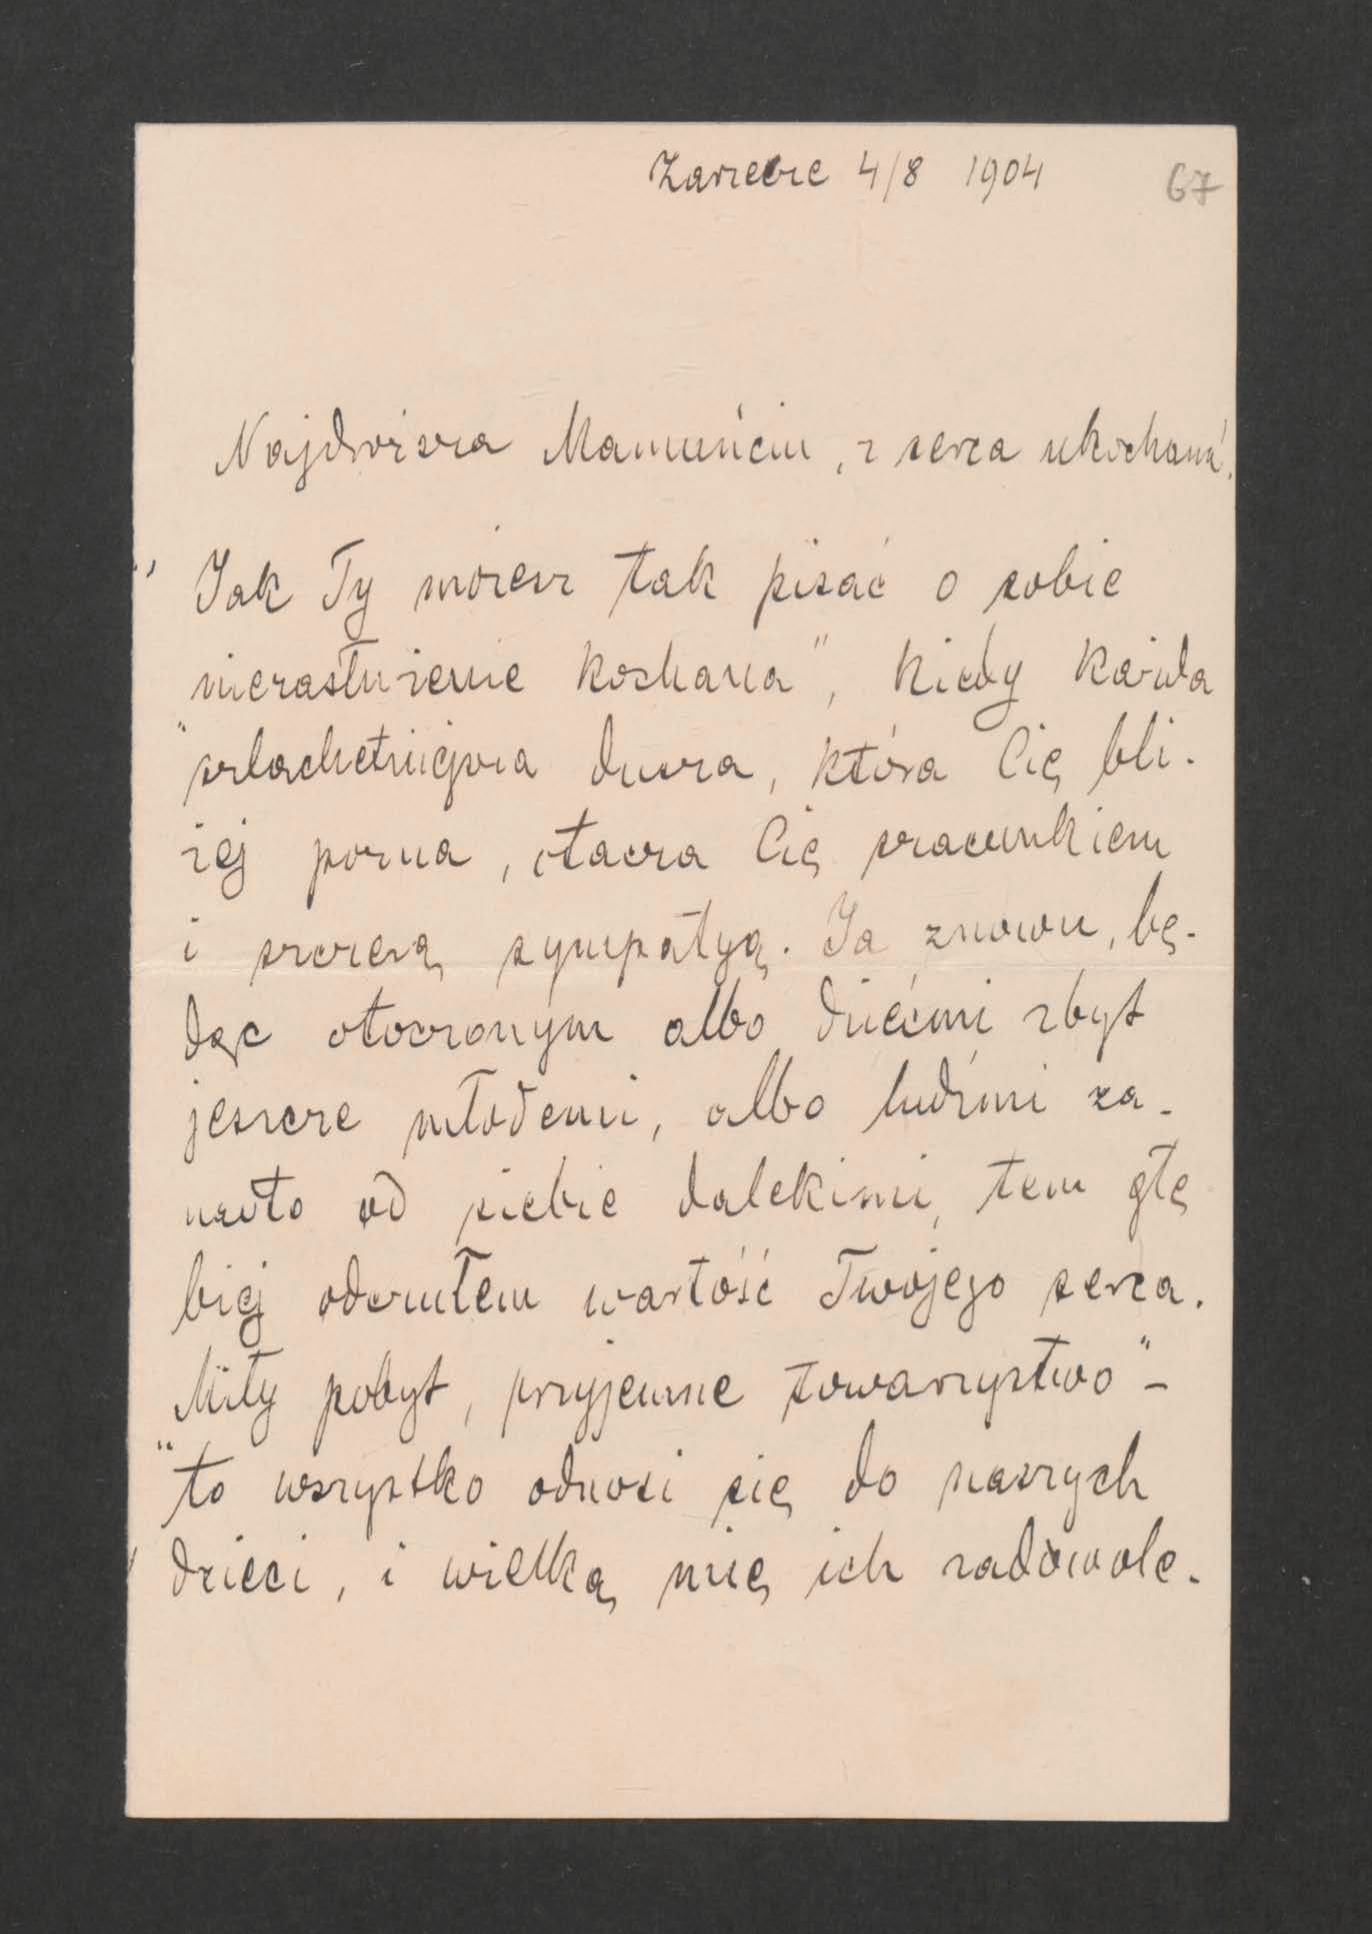 Zarzecze 4/8 1904
67
Najdroższa Mamuńciu, z serca ukochana!
Jak Ty możesz tak pisać o sobie
„niezasłużenie kochana", kiedy każda
szlachetniejsza dusza, która Cię bli-
żej pozna, otacza Cię szacunkiem
i szczerą sympatyą. Ja znowu, bę-
dąc otoczonym albo dziećmi zbyt
jeszcze młodemi, albo ludźmi za-
nadto od siebie dalekimi, tem głę
biej odczułem wartość Twojego serca.
Miły pobyt, przyjemne towarzystwo" –
„to wszystko odnosi się do naszych
dzieci, i wielką mię ich zadowole-